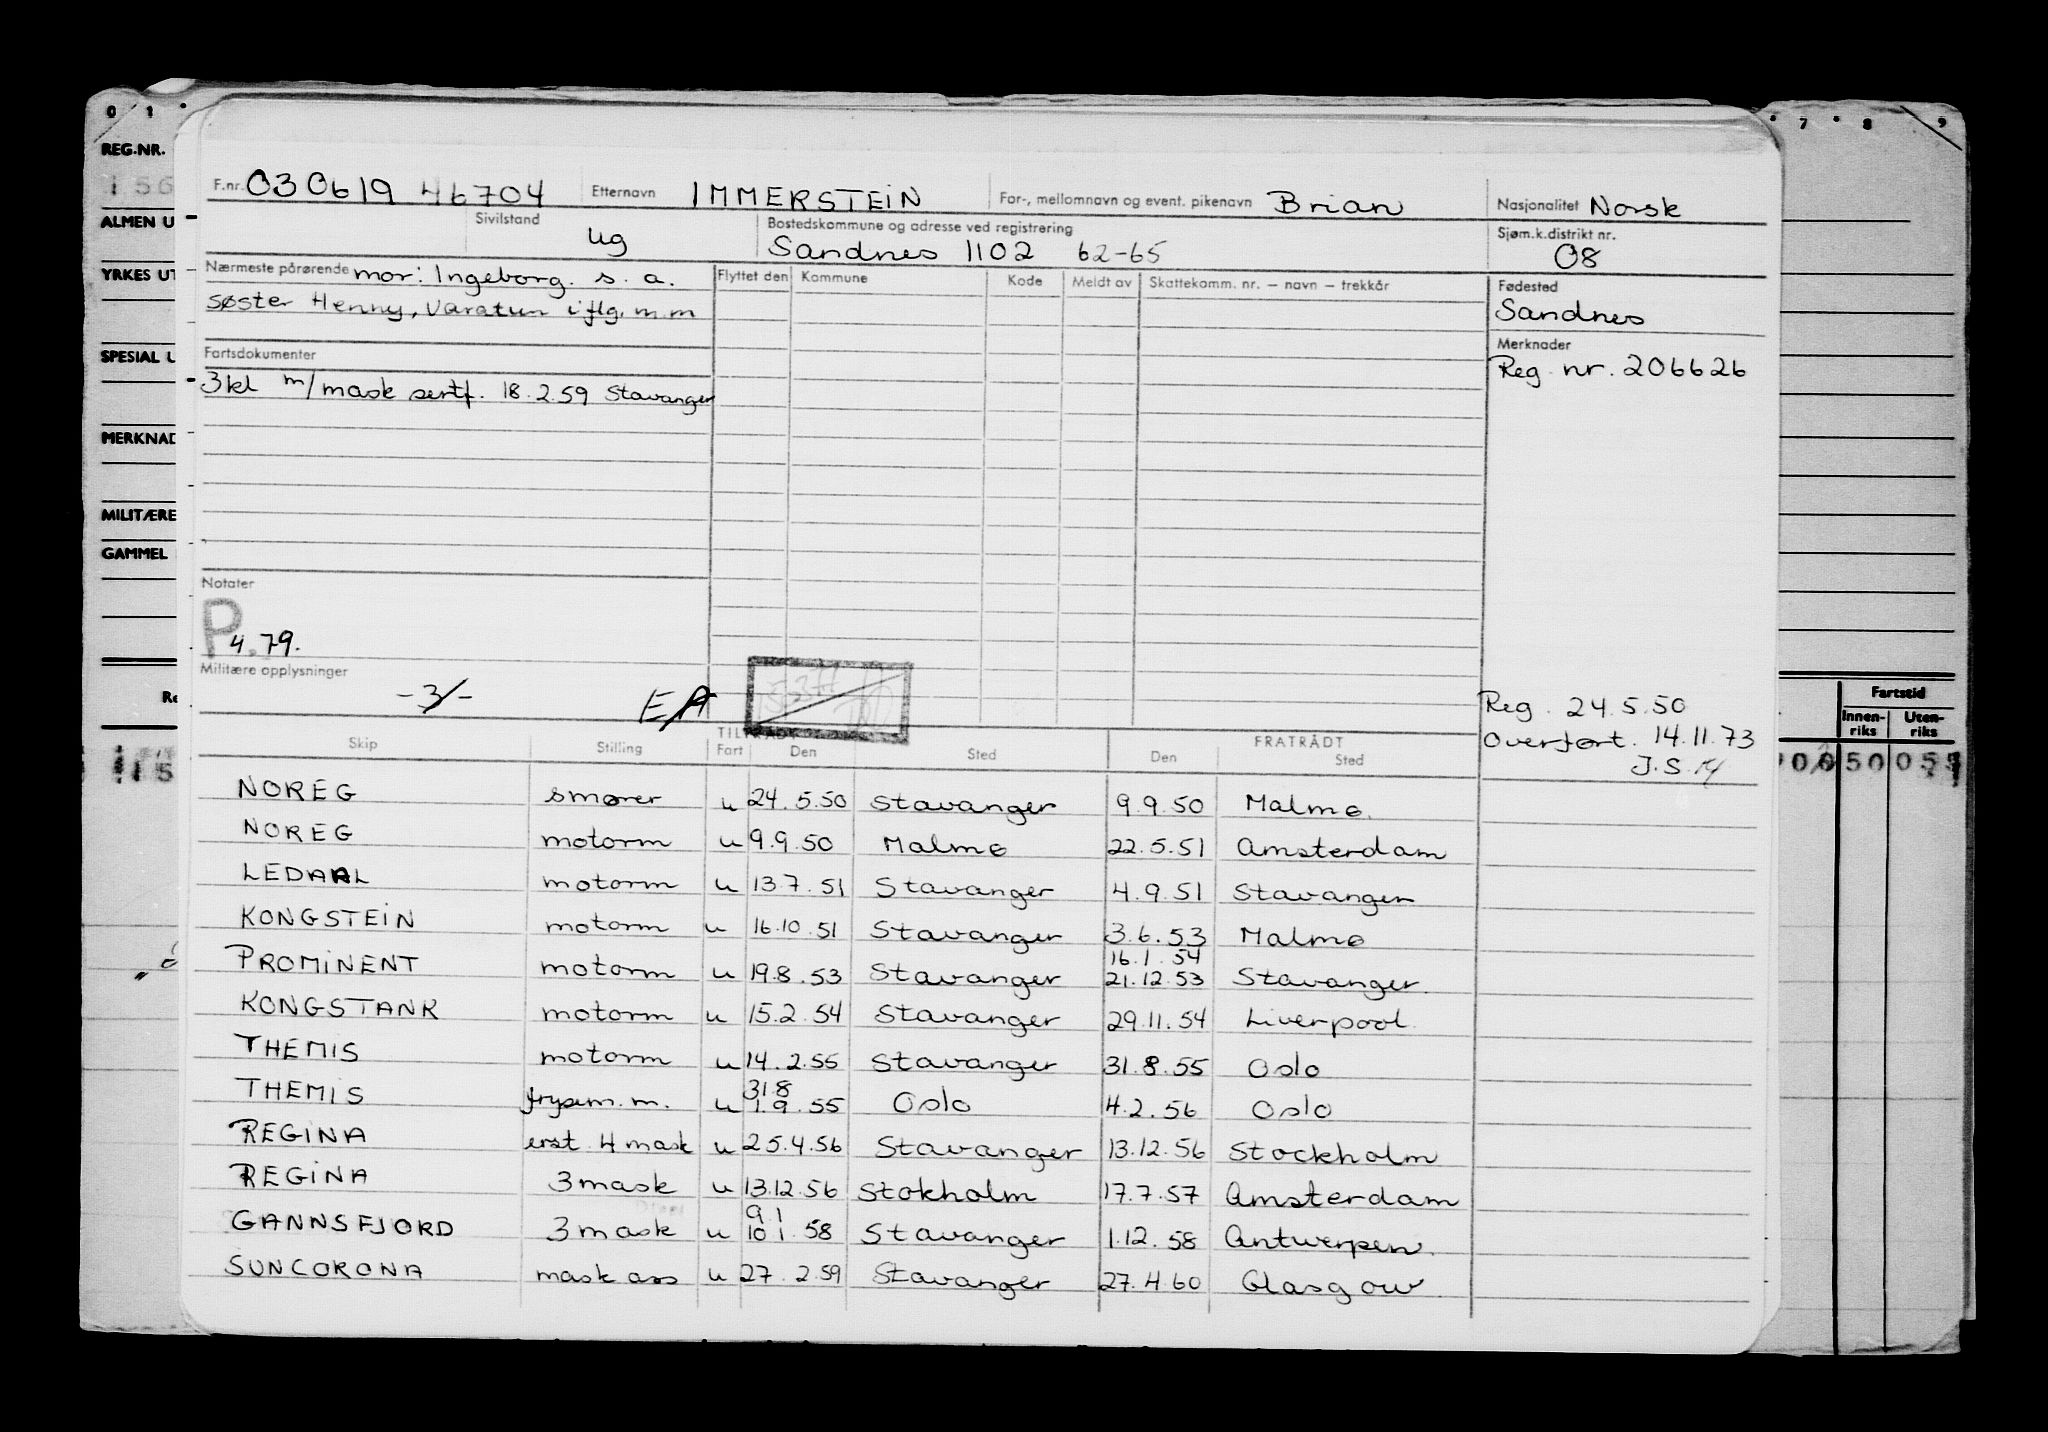 0 1 7 8 9
REG.NR.
ALMEN U
YRKES UT
SPESIAL U
MERKNAD
MILITÆRE
GAMMEL
F.nr. 030619 46704 Etternavn IMMERSTEIN For-, mellomnavn og event. pikenavn Brian Nasjonalitet Norsk
Sivilstand ug Bostedskommune og adresse ved registrering Sandnes 1102 62-65 Sjøm.k.distrikt nr. 08
Nærmeste pårørende mor: Ingeborg. s. a. Flyttet den Kommune Kode Meldt av Skattekomm. nr. – navn – trekkår Fødested
søster Henny, Varatun iflg. m.m Sandnes
Fartsdokumenter Merknader
3kl m/mask sertf. 18.2.59 Stavanger Reg. nr. 206626
Notater
P 4.79.
Militære opplysninger
-3/- E/A
Reg. 24.5.50
Overført. 14.11.73
J.S.
Fartstid
Innen-riks Uten-riks
TILTRÅDT FRATRÅDT
Skip Stilling Fart Den Sted Den Sted
NOREG smører u 24.5.50 Stavanger 9.9.50 Malmø.
NOREG motorm u 9.9.50 Malmø 22.5.51 Amsterdam
LEDAAL motorm u 13.7.51 Stavanger 4.9.51 Stavanger
KONGSTEIN motorm u 16.10.51 Stavanger 3.6.53 Malmø
16.1.54
PROMINENT motorm u 19.8.53 Stavanger 21.12.53 Stavanger.
KONGSTANK motorm u 15.2.54 Stavanger 29.11.54 Liverpool.
THEMIS motorm u 14.2.55 Stavanger 31.8.55 Oslo
31.8
THEMIS frysem.m. u 1.9.55 Oslo 4.2.56 Oslo
REGINA erst. 4 mask u 25.4.56 Stavanger 13.12.56 Stockholm
REGINA 3 mask u 13.12.56 Stokholm 17.7.57 Amsterdam
9 1
GANNSFJORD 3 mask u 10 1.58 Stavanger 1.12.58 Antwerpen.
SUNCORONA mask ass u 27.2.59 Stavanger 27.4.60 Glasgow